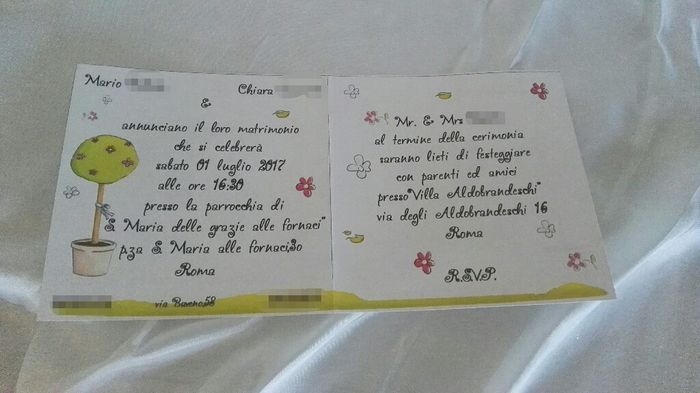 Mario
Chiara
&
annunciano il loro matrimonio
che si celebrerà
sabato 01 luglio 2017
alle ore 16:30
presso la parrocchia di
"S Maria delle grazie alle fornaci"
p.za S Maria alle fornaci,30
Roma
via Baveno,58
Mr. & Mrs
al termine della cerimonia
saranno lieti di festeggiare
con parenti ed amici
presso"Villa Aldobrandeschi"
via degli Aldobrandeschi 16
Roma
R.S.V.P.